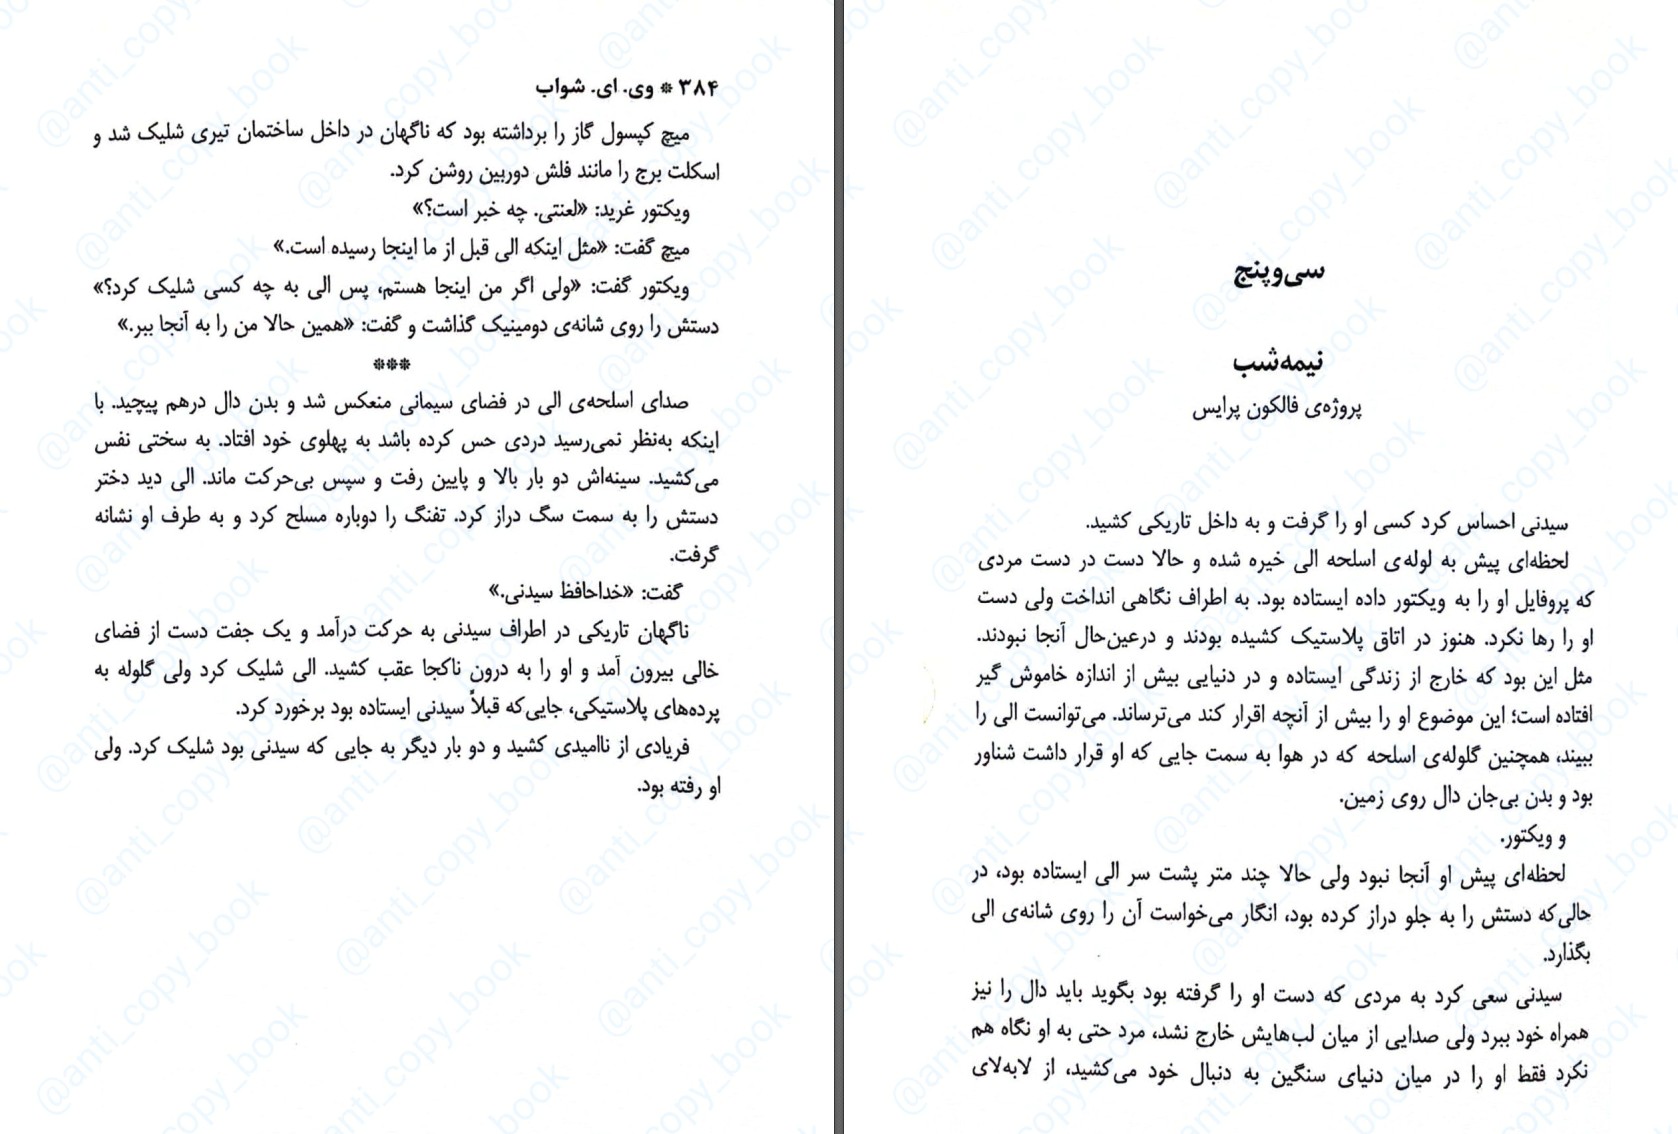 ۳۸۴ * وی. ای. شواب
میچ کپسول گاز را برداشته بود که ناگهان در داخل ساختمان تیری شلیک شد و
اسکلت برج را مانند فلش دوربین روشن کرد.
ویکتور غرید: «لعنتی. چه خبر است؟»
میچ گفت: «مثل اینکه الی قبل از ما اینجا رسیده است.»
ویکتور گفت: «ولی اگر من اینجا هستم، پس الی به چه کسی شلیک کرد؟»
دستش را روی شانه‌ی دومینیک گذاشت و گفت: «همین حالا من را به آنجا ببر.»
***
صدای اسلحه‌ی الی در فضای سیمانی منعکس شد و بدن دال درهم پیچید. با
اینکه به‌نظر نمی‌رسید دردی حس کرده باشد به پهلوی خود افتاد. به سختی نفس
می‌کشید. سینه‌اش دو بار بالا و پایین رفت و سپس بی‌حرکت ماند. الی دید دختر
دستش را به سمت سگ دراز کرد. تفنگ را دوباره مسلح کرد و به طرف او نشانه
گرفت.
گفت: «خداحافظ سیدنی.»
ناگهان تاریکی در اطراف سیدنی به حرکت درآمد و یک جفت دست از فضای
خالی بیرون آمد و او را به درون ناکجا عقب کشید. الی شلیک کرد ولی گلوله به
پرده‌های پلاستیکی، جایی‌که قبلاً سیدنی ایستاده بود برخورد کرد.
فریادی از ناامیدی کشید و دو بار دیگر به جایی که سیدنی بود شلیک کرد. ولی
او رفته بود.
سی‌وپنج
نیمه‌شب
پروژه‌ی فالکون پرایس
سیدنی احساس کرد کسی او را گرفت و به داخل تاریکی کشید.
لحظه‌ای پیش به لوله‌ی اسلحه الی خیره شده و حالا دست در دست مردی
که پروفایل او را به ویکتور داده ایستاده بود. به اطراف نگاهی انداخت ولی دست
او را رها نکرد. هنوز در اتاق پلاستیک کشیده بودند و درعین‌حال آنجا نبودند.
مثل این بود که خارج از زندگی ایستاده و در دنیایی بیش از اندازه خاموش گیر
افتاده است؛ این موضوع او را بیش از آنچه اقرار کند می‌ترساند. می‌توانست الی را
ببیند، همچنین گلوله‌ی اسلحه که در هوا به سمت جایی که او قرار داشت شناور
بود و بدن بی‌جان دال روی زمین.
و ویکتور.
لحظه‌ای پیش او آنجا نبود ولی حالا چند متر پشت سر الی ایستاده بود، در
حالی‌که دستش را به جلو دراز کرده بود، انگار می‌خواست آن را روی شانه‌ی الی
بگذارد.
سیدنی سعی کرد به مردی که دست او را گرفته بود بگوید باید دال را نیز
همراه خود ببرد ولی صدایی از میان لب‌هایش خارج نشد، مرد حتی به او نگاه هم
نکرد فقط او را در میان دنیای سنگین به دنبال خود می‌کشید، از لابه‌لای
@anti_copy_book